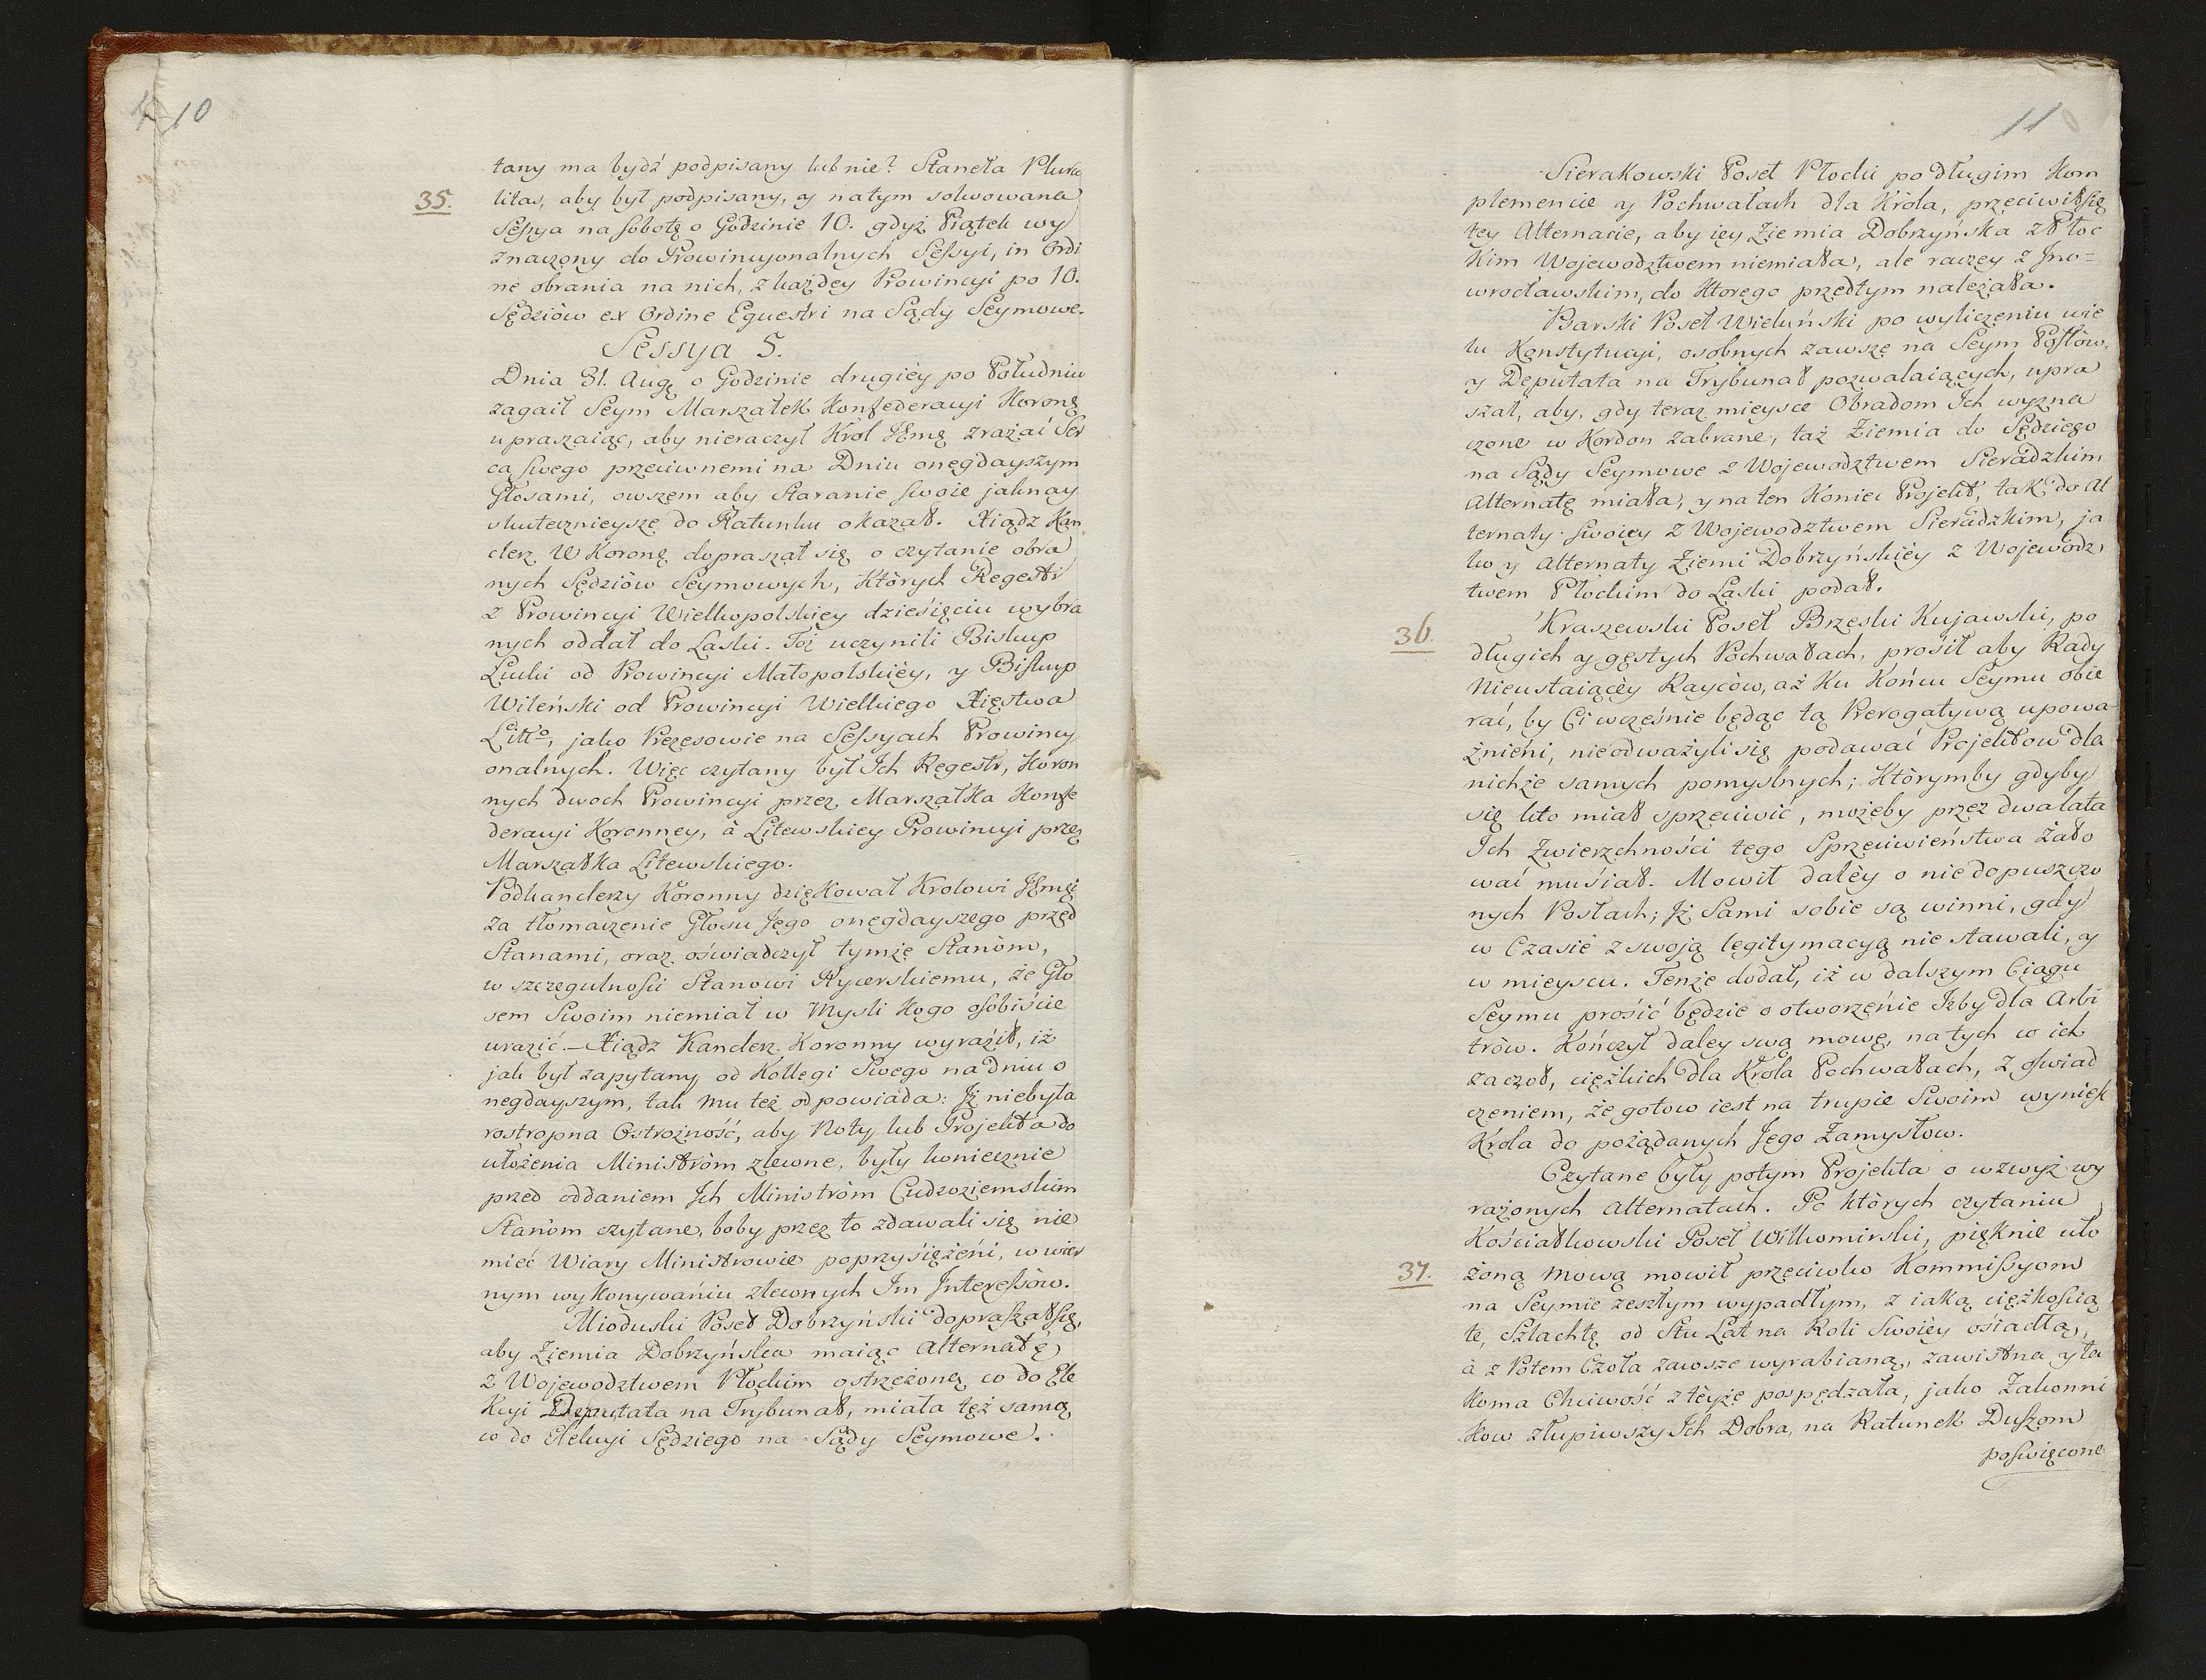 4 10
tany ma bydź podpisany lub nie? Staneła Plura
35.
litas, aby był podpisany, y natym solwowana
Sessya na sobotę o Godzinie 10. gdyż Piątek wy
znaczony do Prowincyonalnych Sessyi, in Ordi
ne obrania na nich, z każdey Prowincyi po 10.
Sędziów ex Ordine Equestri na Sądy Seymowe.
Sessya 5.
Dnia 31. Aug. o Godzinie drugiéy po Południu
zagaił Seym Marszałek Konfederacyi Koronę
upraszaiąc, aby nieraczył Krol JEmę zrażać Ser
ca swego przeciwnemi na Dniu onegdayszym
Głosami, owszem aby Staranie swoie jaknay
skutecznieysze do Ratunku okazał. Xiądz Kan
clerz W Koronę dopraszał się o czytanie obra
nych Sędziów Seymowych, Których Regestr
z Prowincyi Wielkopolskiey dziesięciu wybra
nych oddał do Laski. Toż uczynili Biskup
Lucki od Prowincyi Małopolskiéy, y Biskup
Wileński od Prowincyi Wielkiego Xięstwa
Littº, jako Prezesowie na Sessyach Prowincy
onalnych. Więc czytany był Ich Regestr, Koron
nych dwoch Prowincyi przez Marszałka Konfe
deracyi Koronney, à Litewskiey Prowincyi przez
Marszałka Litewskiego.
Podkanclerzy Koronny dziękował Krolowi JEmci
za tłomaczenie Głosu Jego onegdayszego przed
Stanami, oraz oświadczył tymże Stanòm,
w szczegulności Stanowi Rycerskiemu, że Gło
sem Swoim niemiał w Mysli kogo osobiście
urazić. — Xiądz Kanclerz Koronny wyraźił, iż
jak był zapytany od Kollegi Swego na dniu o
negdayszym, tak mu też odpowiada: Iż niebyła
rostropna Ostrożność, aby Noty lub Projekta do
ułożenia Ministròm zlecone, były koniecznie
przed oddaniem Ich Ministròm Cudzoziemskim
Stanom czytane, boby przez to zdawali się nie
mieć Wiary Ministrowie poprzysiężéni, w wier
nym wykonywaniu zleconych Im Interessòw.
Mioduski Poseł Dobrzyński dopraszał się,
aby Ziemia Dobrzyńska maiąc Alternatę
z Wojewodztwem Płockim ostrzeżoną co do Ele
Kcyi Deputata na Trybunał, miała też samą
co do Elekcyi Sędziego na Sądy Seymowe.
11
Sierakowski Poseł Płocki po długim Kom
plemencie y Pochwałach dla Króla, przeciwił się
tey Alternacie, aby iey Ziemia Dobrzyńska z Płoc
Kim Wojewodztwem niemiała, ale raczey z Jno=
wrocławskim, do Ktorego przedtym należała.
Barski Poseł Wieluński po wyliczeniu wie
lu Konstytucyi, osobnych zawsze na Seym Posłòw,
y Deputata na Trybunał pozwalaiących, upra
szał, aby, gdy teraz mieysce Obradom Ich wyzna
czone w Kordon zabrane, taż Ziemia do Sędziego
na Sądy Seymowe z Wojewodztwem Sieradzkim
Alternatę miała, y na ten Koniec Projekt, tak do Al
ternaty swoiey z Wojewodztwem Sieradzkim, ja
ko y Alternaty Ziemi Dobrzyńskiéy z Wojewodz
twem Płockim do Laski podał.
36.
Kraszewski Poseł Brzeski Kujawski, po
długich y gęstych Pochwałach, prosił aby Rady
Nieustaiącéy Rayców, aż Ku Końcu Seymu obie
rać, by Ci wcześnie będąc tą Prerogatywą upowa
żnieni, nieodważyli się podawać Projektow dla
nichże samych pomyslnych; Którymby gdyby
się kto miał sprzeciwić, możeby przez dwa lata
Ich Zwierzchności tego Sprzeciwieństwa żało
wać musiał. Mowił daléy o niedopuszczo
nych Posłach; Iż Sami sobie są winni, gdy
w Czasie z swoją legitymacyą nie stawali, y
w mieyscu. Tenże dodał, iż w dalszym Ciągu
Seymu prośić będzie o otworzenie Izby dla Arbi
tròw. Kończył daley swą mowę, na tych co ich
zaczoł, ciężkich dla Króla Pochwałach, z oswiad
czeniem, że gotow iest na trupie Swoim wynieść
Króla do pożądanych Jego Zamysłow.
Czytane były potym Projekta o wzwyż wy
rażonych Alternatach. Po których czytaniu
Kościałkowski Poseł Wiłkomirski, pięknie uło
37.
żoną Mową mowił przeciwko Kommissyom
na Seymie zeszłym wypadłym, z iaką ciężkością
te, Szlachtę od Stu Lat na Roli Swoiéy osiadłą,
à z Potem Czoła zawsze wyrabianą, zawistna y ła
Koma Chciwość z téyże pospędzała, jako Zakonni
Kow złupiwszy Ich Dobra, na Ratunek Duszom
poswięcone